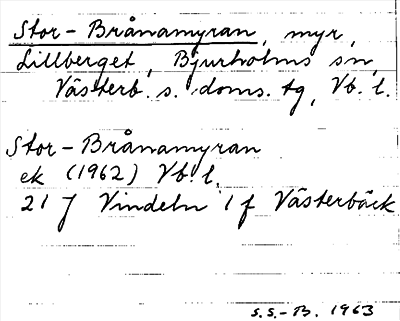 Stor-Brånamyran, myr,
Lillberget, Bjurholms sn,
Västerb. s. doms. tg, Vb. l.
Stor-Brånamyran
ek (1962) Vb. l.
21 J Vindeln 1 f Västerbäck
S.S.-B. 1963